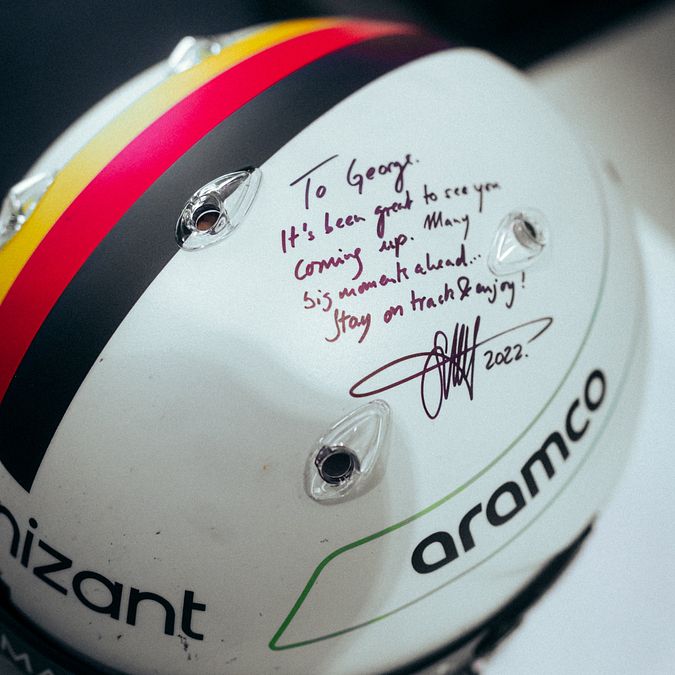 To George.
It's been great to see you
coming up. Many
big moments ahead...
Stay on track & enjoy!
2022.
aramco
nizant
MA